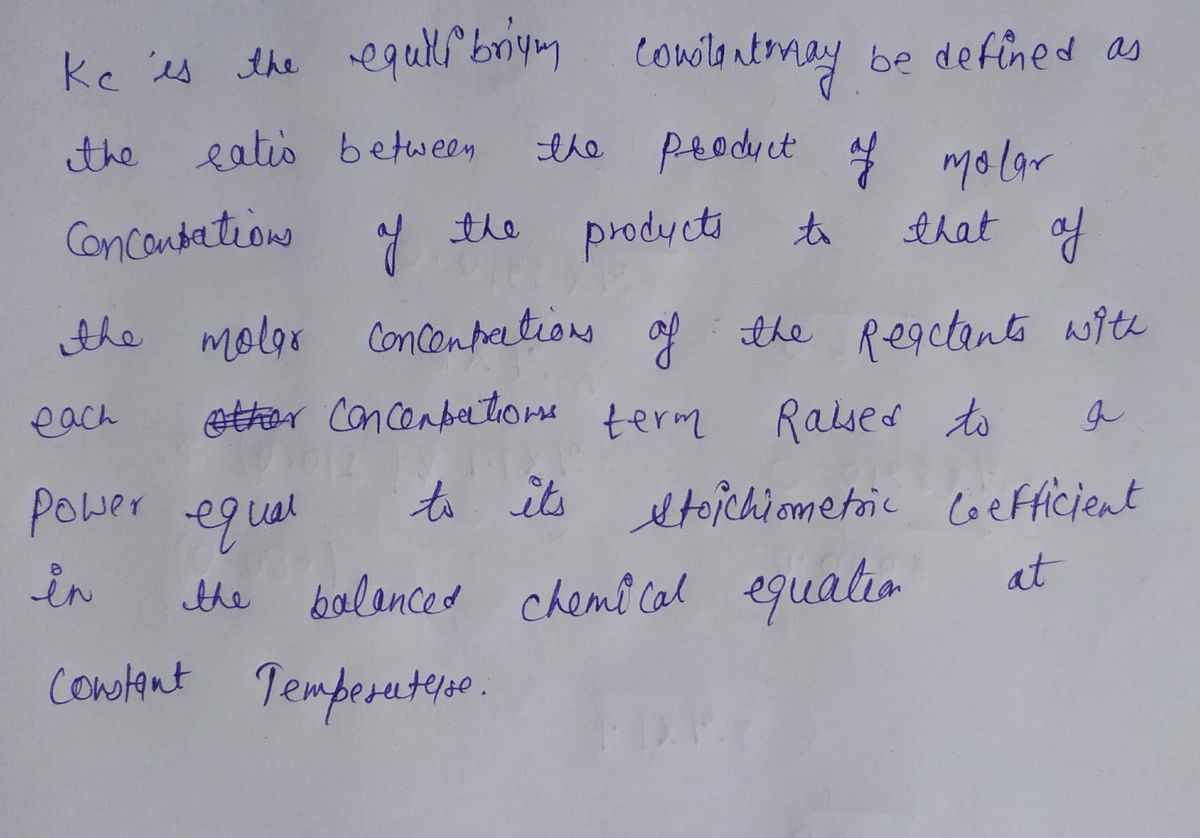 Kc is the equilibrium constant may be defined as
the ratio between the product of molar
Concentrations of the products to that of
the molar Concentrations of the Reactants with
each other Concentrations term Raised to a
Power equal to its stoichiometric Coefficient
in the balanced chemical equation at
Constant Temperature.